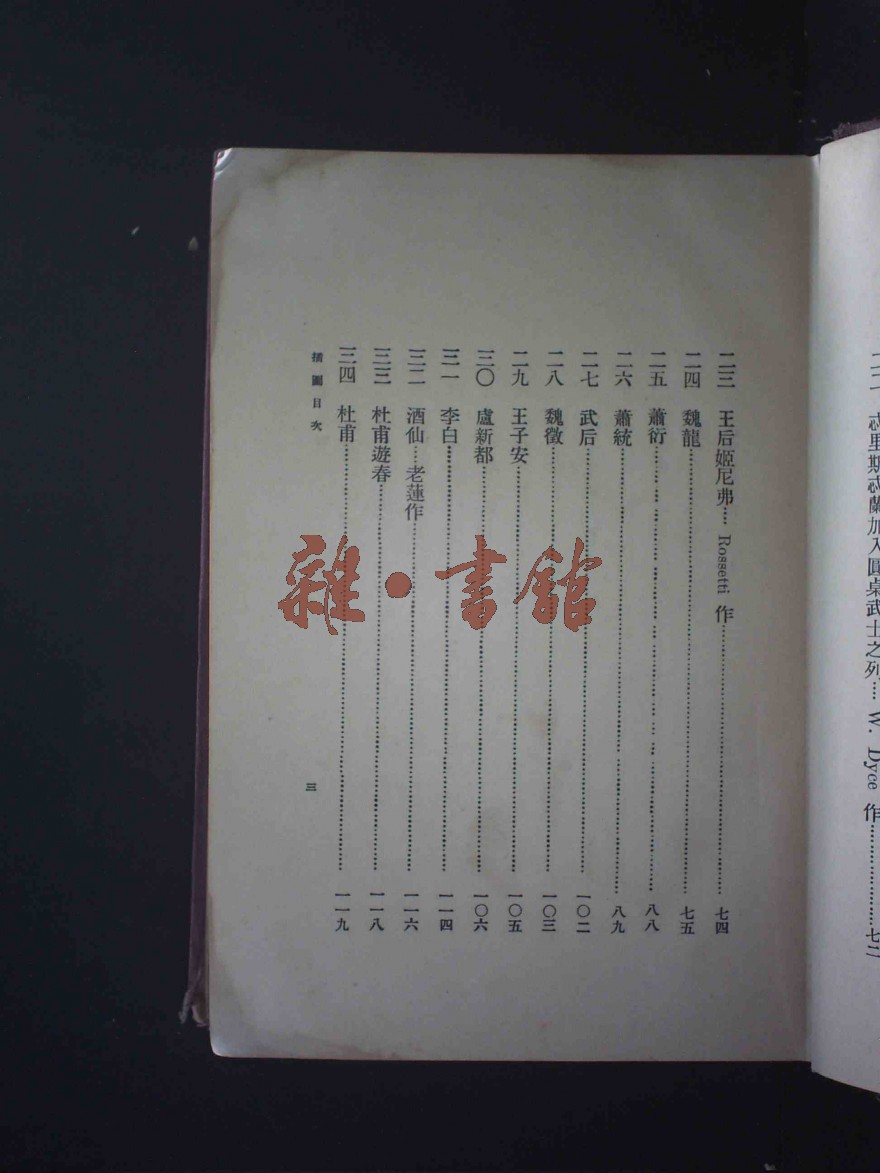 二二 忒里斯忒蘭加入圓桌武士之列…… W. Dyce 作……七二
二三 王后姬尼弗…… Rossetti 作……七四
二四 魏龍……七五
二五 蕭衍……八八
二六 蕭統……八九
二七 武后……一〇二
二八 魏徵……一〇三
二九 王子安……一〇五
三〇 盧新都……一〇六
三一 李白……一一四
三二 酒仙……老蓮作……一一六
三三 杜甫遊春……一一八
三四 杜甫……一一九
插圖目次
三
雜·書館